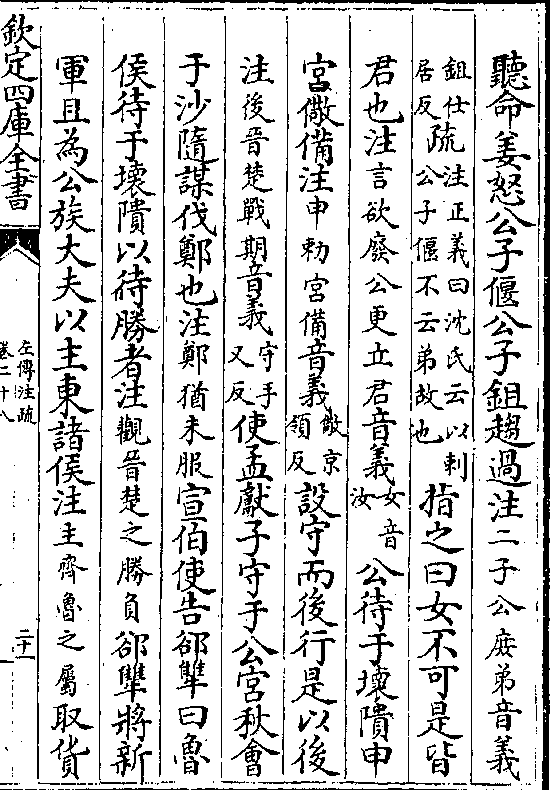 聽命姜怒公子偃公子鉏趨過注二子公庶弟音義
鉏仕居反疏注正義曰沈氏云以刺公子偃不云弟故也指之曰女不可是皆
君也注言欲廢公更立君音義女音汝公待于壞隤申
宮儆備注申勅宮備音義儆京領反設守而後行是以後
注後晉楚戰期音義守手又反使孟獻子守于公宮秋會
于沙隨謀伐鄭也注鄭猶未服宣伯使告郤犨曰魯
侯待于壞隤以待勝者注觀晉楚之勝負郤犨將新
軍且為公族大夫以主東諸侯注主齊魯之屬取貨
欽定四庫全書
左傳注疏
卷二十八
二十一